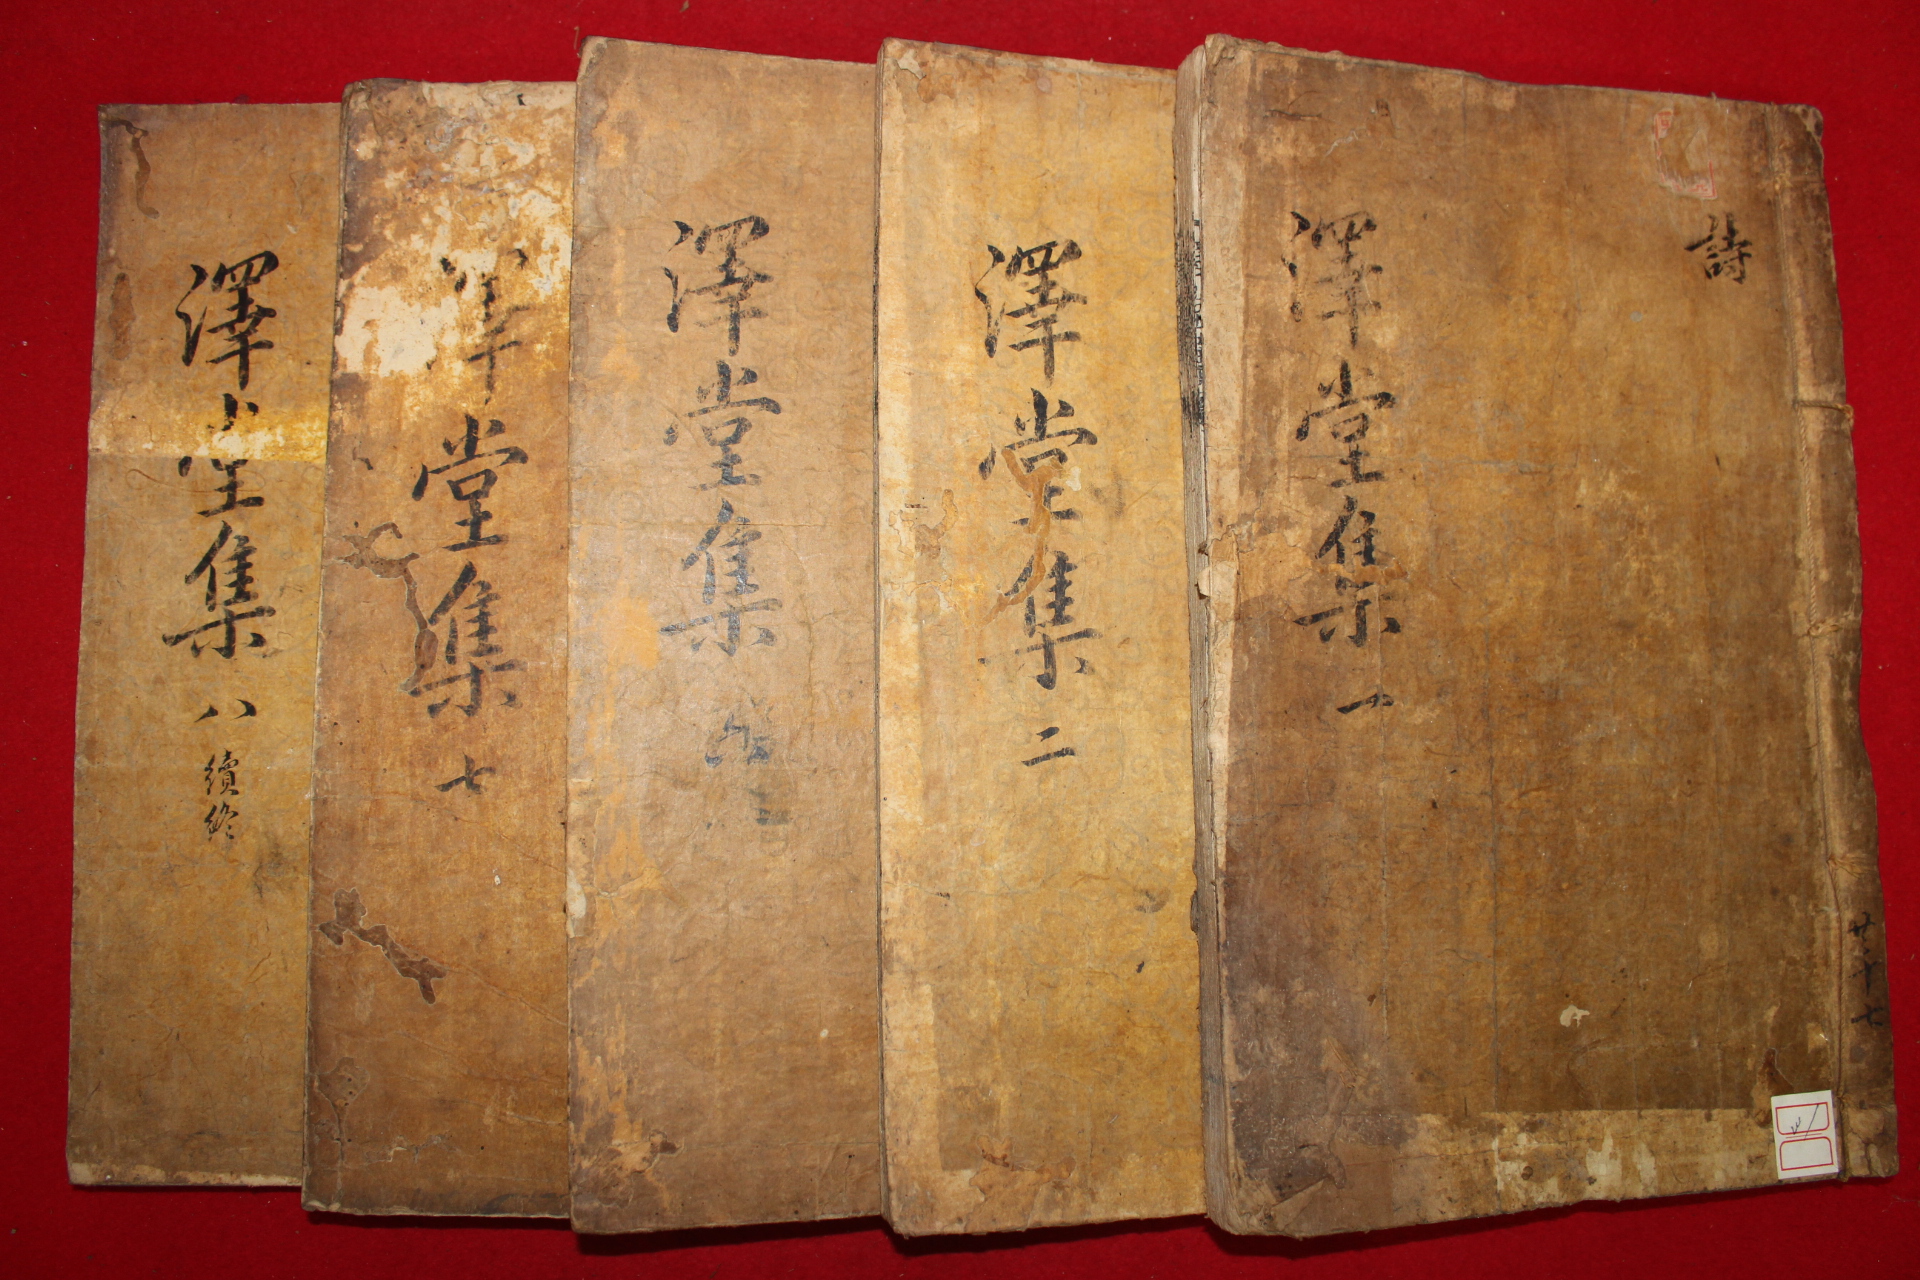 詩
澤堂集 一
廿十七
澤堂集 二
澤堂集 三
澤堂集 七
澤堂集 八 續終